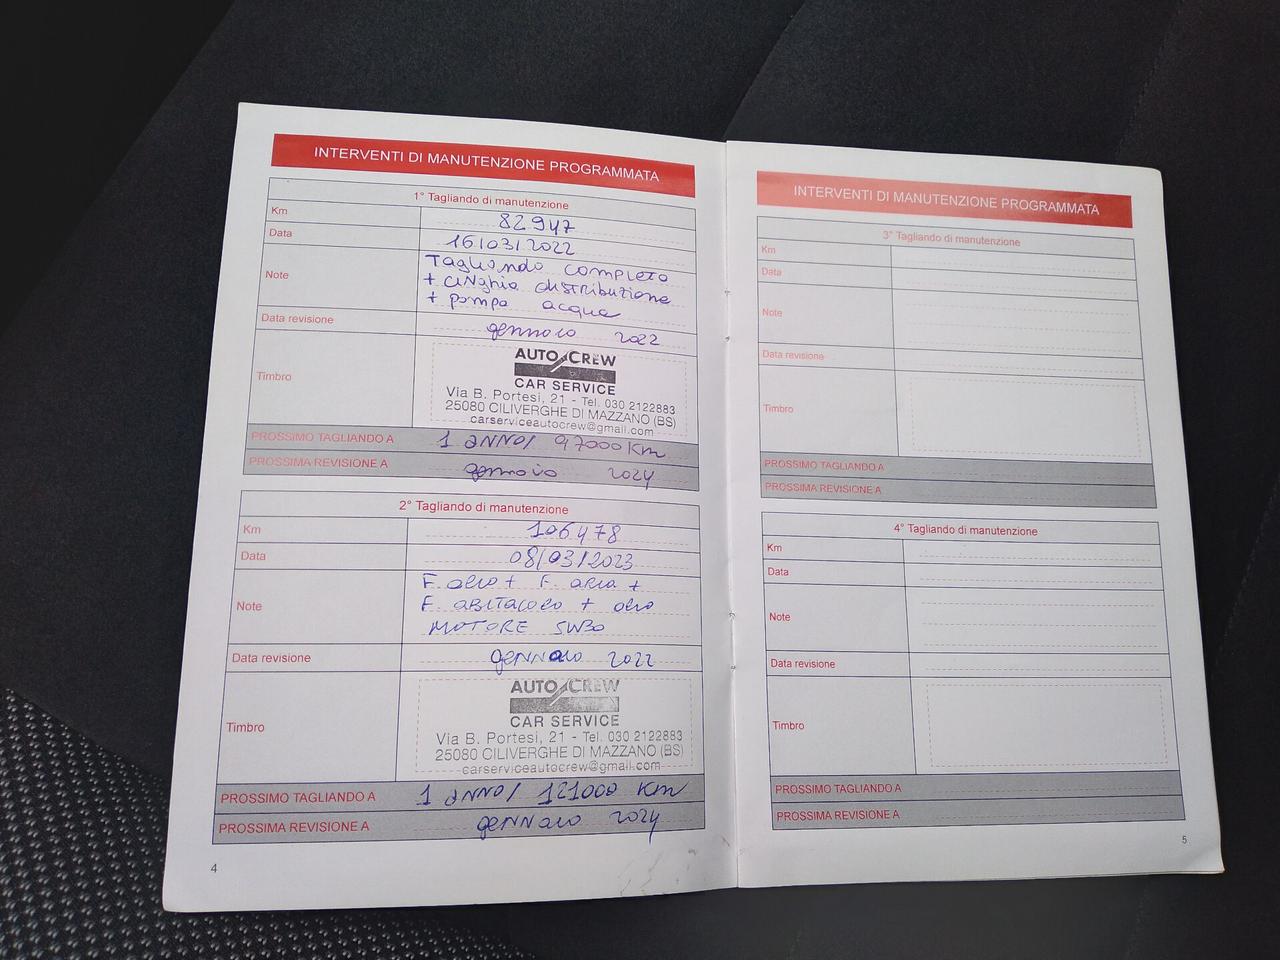 INTERVENTI DI MANUTENZIONE PROGRAMMATA
1° Tagliando di manutenzione
Km 82947
Data 16/03/2022
Note Tagliando completo
+ cinghia distribuzione
+ pompa acqua
Data revisione gennaio 2022
Timbro
AUTO CREW
CAR SERVICE
Via B. Portesi, 21 - Tel. 030 2122883
25080 CILIVERGHE DI MAZZANO (BS)
carserviceautocrew@gmail.com
PROSSIMO TAGLIANDO A 1 anno/ 97000 Km
PROSSIMA REVISIONE A gennaio 2024
2° Tagliando di manutenzione
Km 106478
Data 08/03/2023
Note F. olio + F. aria +
F. abitacolo + olio
MOTORE 5W30
Data revisione gennaio 2022
Timbro
AUTO CREW
CAR SERVICE
Via B. Portesi, 21 - Tel. 030 2122883
25080 CILIVERGHE DI MAZZANO (BS)
carserviceautocrew@gmail.com
PROSSIMO TAGLIANDO A 1 anno/ 121000 Km
PROSSIMA REVISIONE A gennaio 2024
4
INTERVENTI DI MANUTENZIONE PROGRAMMATA
3° Tagliando di manutenzione
Km
Data
Note
Data revisione
Timbro
PROSSIMO TAGLIANDO A
PROSSIMA REVISIONE A
4° Tagliando di manutenzione
Km
Data
Note
Data revisione
Timbro
PROSSIMO TAGLIANDO A
PROSSIMA REVISIONE A
5